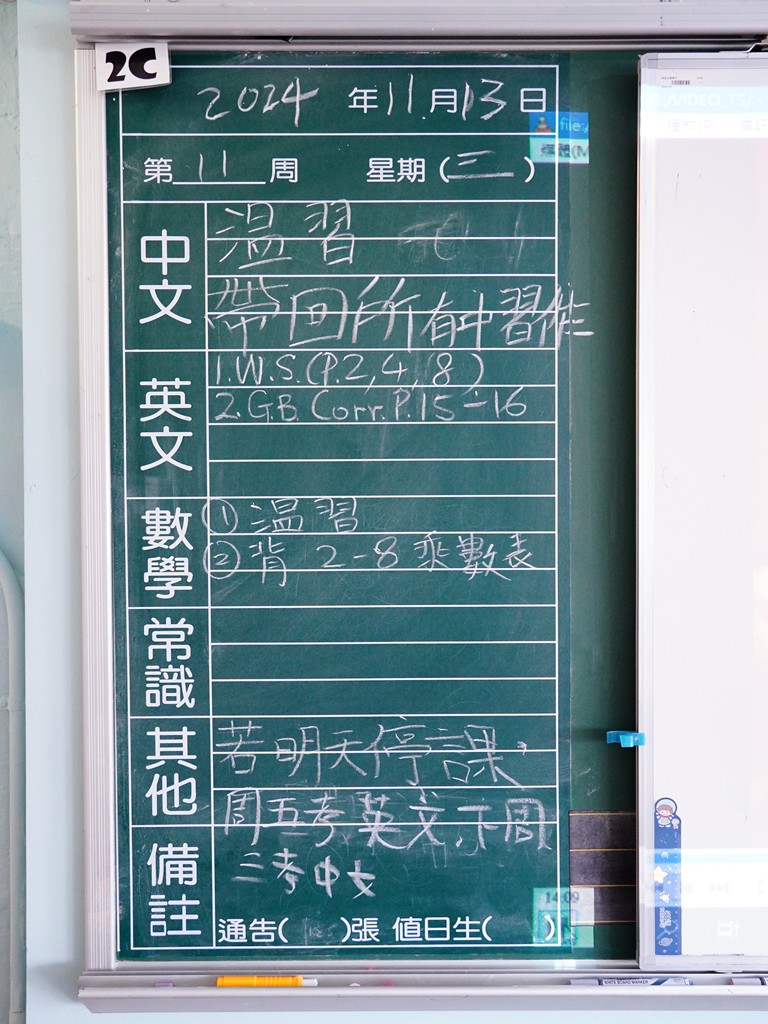 2C
2024 年 11 月 13 日
第 11 周 星期 (三)
中文
温習
帶回所有中習作
英文
1. W.S. (P.2, 4, 8)
2. G.B. Corr. P.15-16
數學
① 温習
② 背 2-8 乘數表
常識
其他
若明天停課,
周五考英文,下周
三考中文
備註
通告( )張 值日生( )
file:/
媒體(M
VIDEO_TS/
14:09
WHITE BOARD MARKER